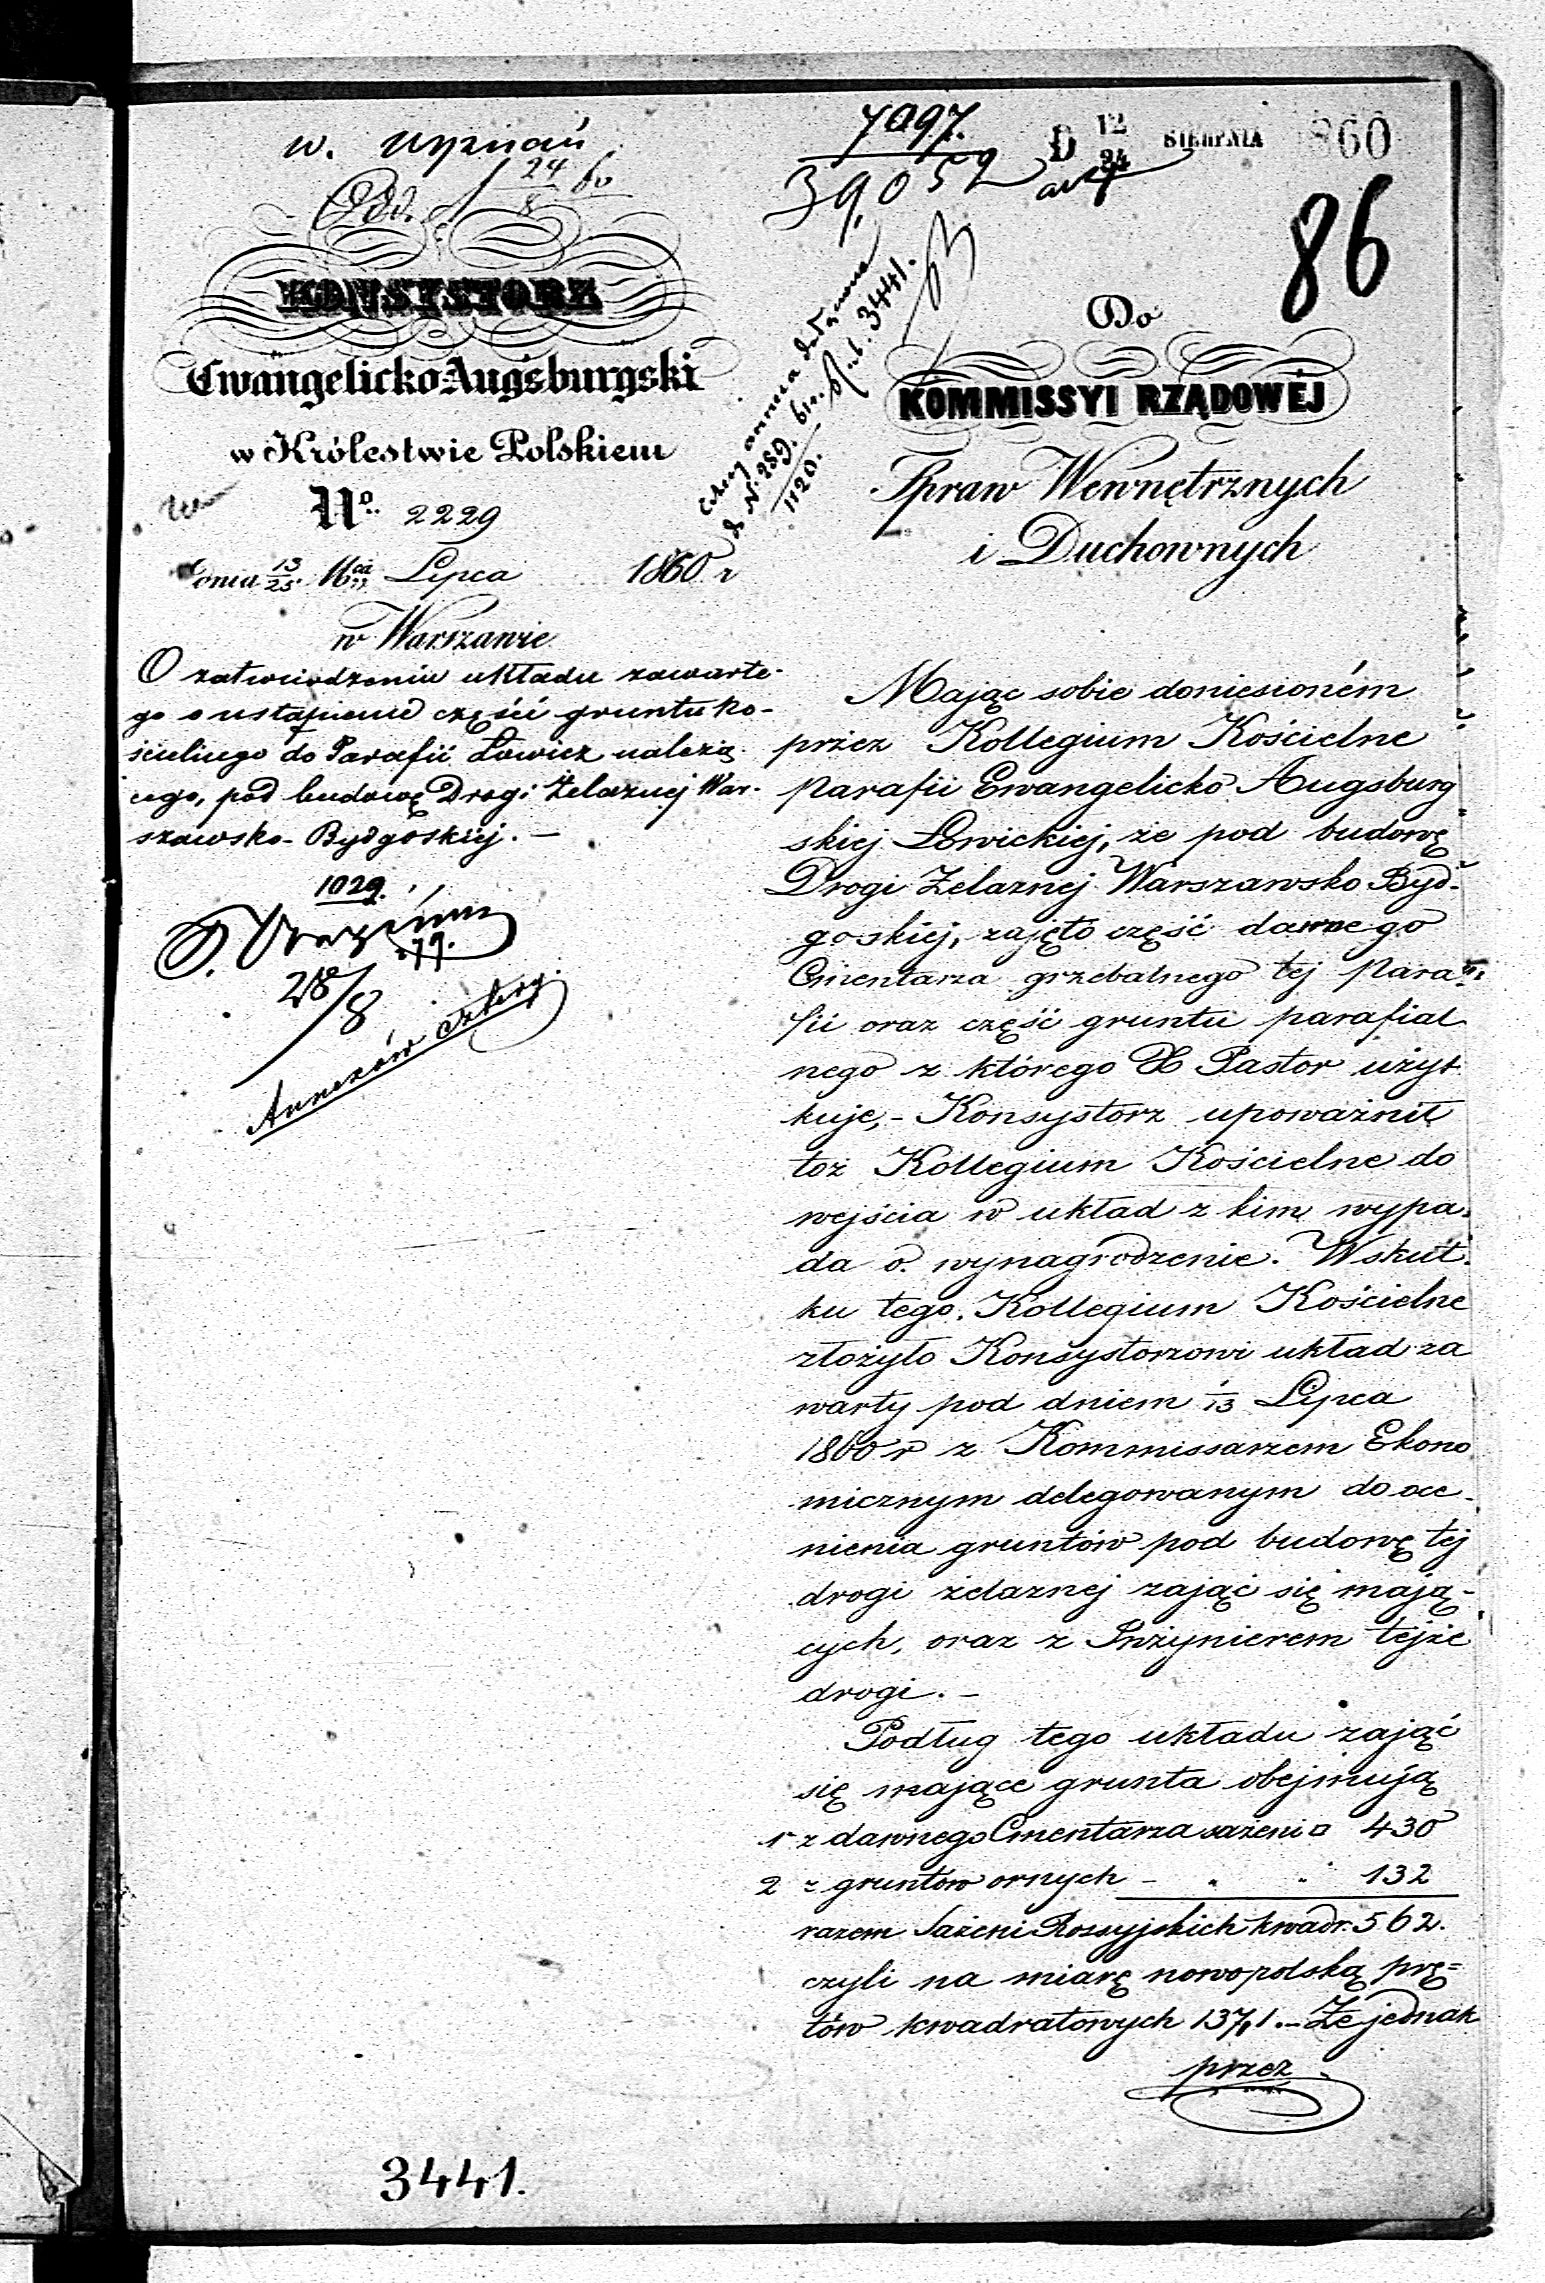 w. wyznań
24/8 60
7097.
39,052
D 12/24 SIERPNIA 860
86
KONSYSTORZ
Ewangelicko-Augsburgski
w Królestwie Polskiem
No. 2229
dnia 13/25 Mca Lipca 1860 r
w Warszawie
cztery annexa dołączone
d N. 289. 3441.
1120.
O zatwierdzenie układu zawarte-
go o ustąpienie części gruntu ko-
ścielnego do Parafii Łowicz należą-
cego, pod budowę Drogi Żelaznej War-
szawsko-Bydgoskiej. —
1029.
28/8
Annexów cztery.
Do
KOMMISSYI RZĄDOWÉJ
Spraw Wewnętrznych
i Duchownych
Mając sobie doniesioném
przez Kollegium Kościelne
Parafii Ewangelicko Augsburg
skiej Łowickiej, że pod budowę
Drogi Żelaznej Warszawsko Byd-
goskiej, zajęto część dawnego
Cmentarza grzebalnego tej Para-
fii oraz część gruntu parafial
nego z którego X Pastor użyt
kuje, – Konsystorz upoważnił
toż Kollegium Kościelne do
wejścia w układ z kim wypa-
da o wynagrodzenie. Wskut-
ku tego, Kollegium Kościelne
złożyło Konsystorzowi układ za
warty pod dniem 1/13 Lipca
1860 r z Kommissarzem Ekono
micznym delegowanym do oce-
nienia gruntów pod budowę tej
drogi żelaznej zająć się mają-
cych, oraz z Inżynierem tejże
drogi. –
Podług tego układu zająć
się mające grunta obejmują
1 z dawnego Cmentarza sażeni □ 430
2 z gruntów ornych – " " 132
razem Sażeni Rossyjskich kwadr. 562.
czyli na miarę nowopolską prę=
tów kwadratowych 137,1. – Że jednak
przez
3441.